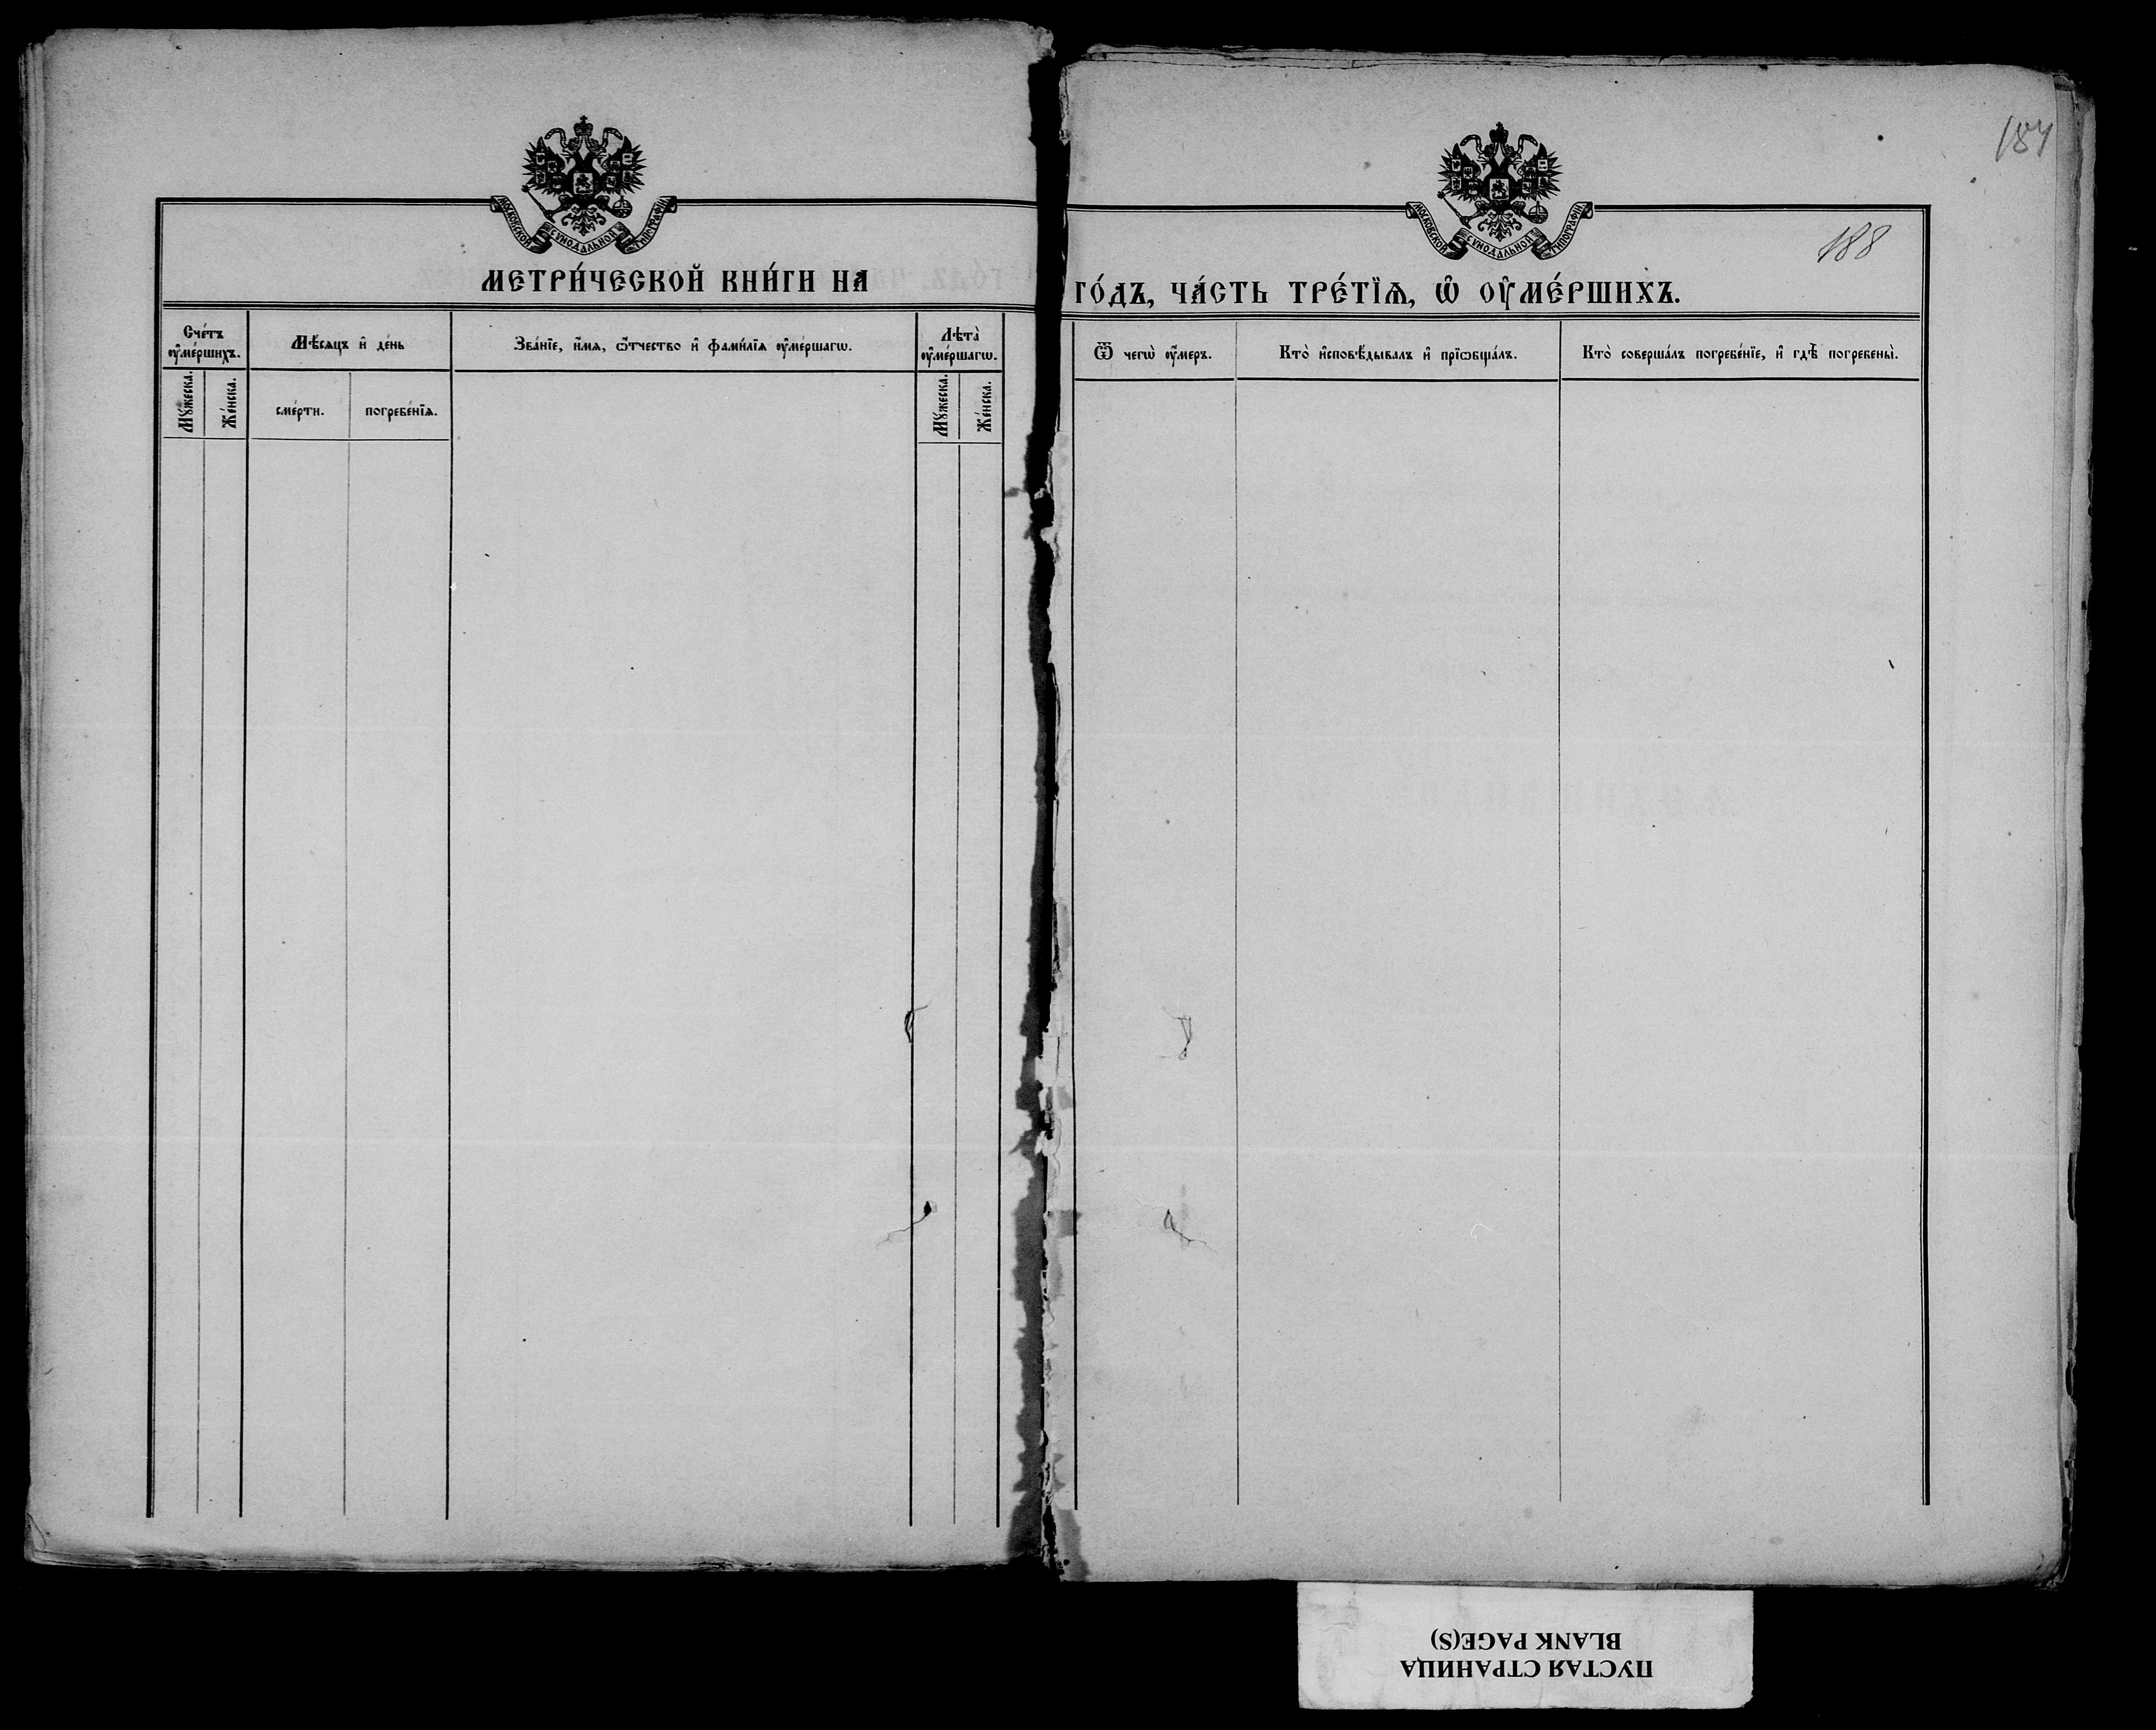 187
188
МОСКОВСКОЙ СѴНОДАЛЬНОЙ ТИПОГРАФІИ
МОСКОВСКОЙ СѴНОДАЛЬНОЙ ТИПОГРАФІИ
МЕТРИ́ЧЕСКОЙ КНИ́ГИ НА ГО́ДЪ, ЧА́СТЬ ТРЕ́ТЇѦ, Ѡ҆ ОУ҆МЕ́РШИХЪ.
Сче́тъ оу҆ме́ршихъ.
Мѣ́сяцъ и҆ де́нь
Зва́нїе, и҆́мѧ, ѻ҆́тчество и҆ фами́лїѧ оу҆ме́ршагѡ.
Лѣта̀ оу҆ме́ршагѡ.
Ѿ чегѡ̀ оу҆́меръ.
Кто̀ и҆сповѣ́дывалъ и҆ прїѡбща́лъ.
Кто̀ соверша́лъ погребе́нїе, и҆ гдѣ̀ погребены̀.
Мꙋ́жеска.
Же́нска.
сме́рти.
погребе́нїѧ.
Мꙋ́жеска.
Же́нска.
ПУСТАЯ СТРАНИЦА
BLANK PAGE(S)